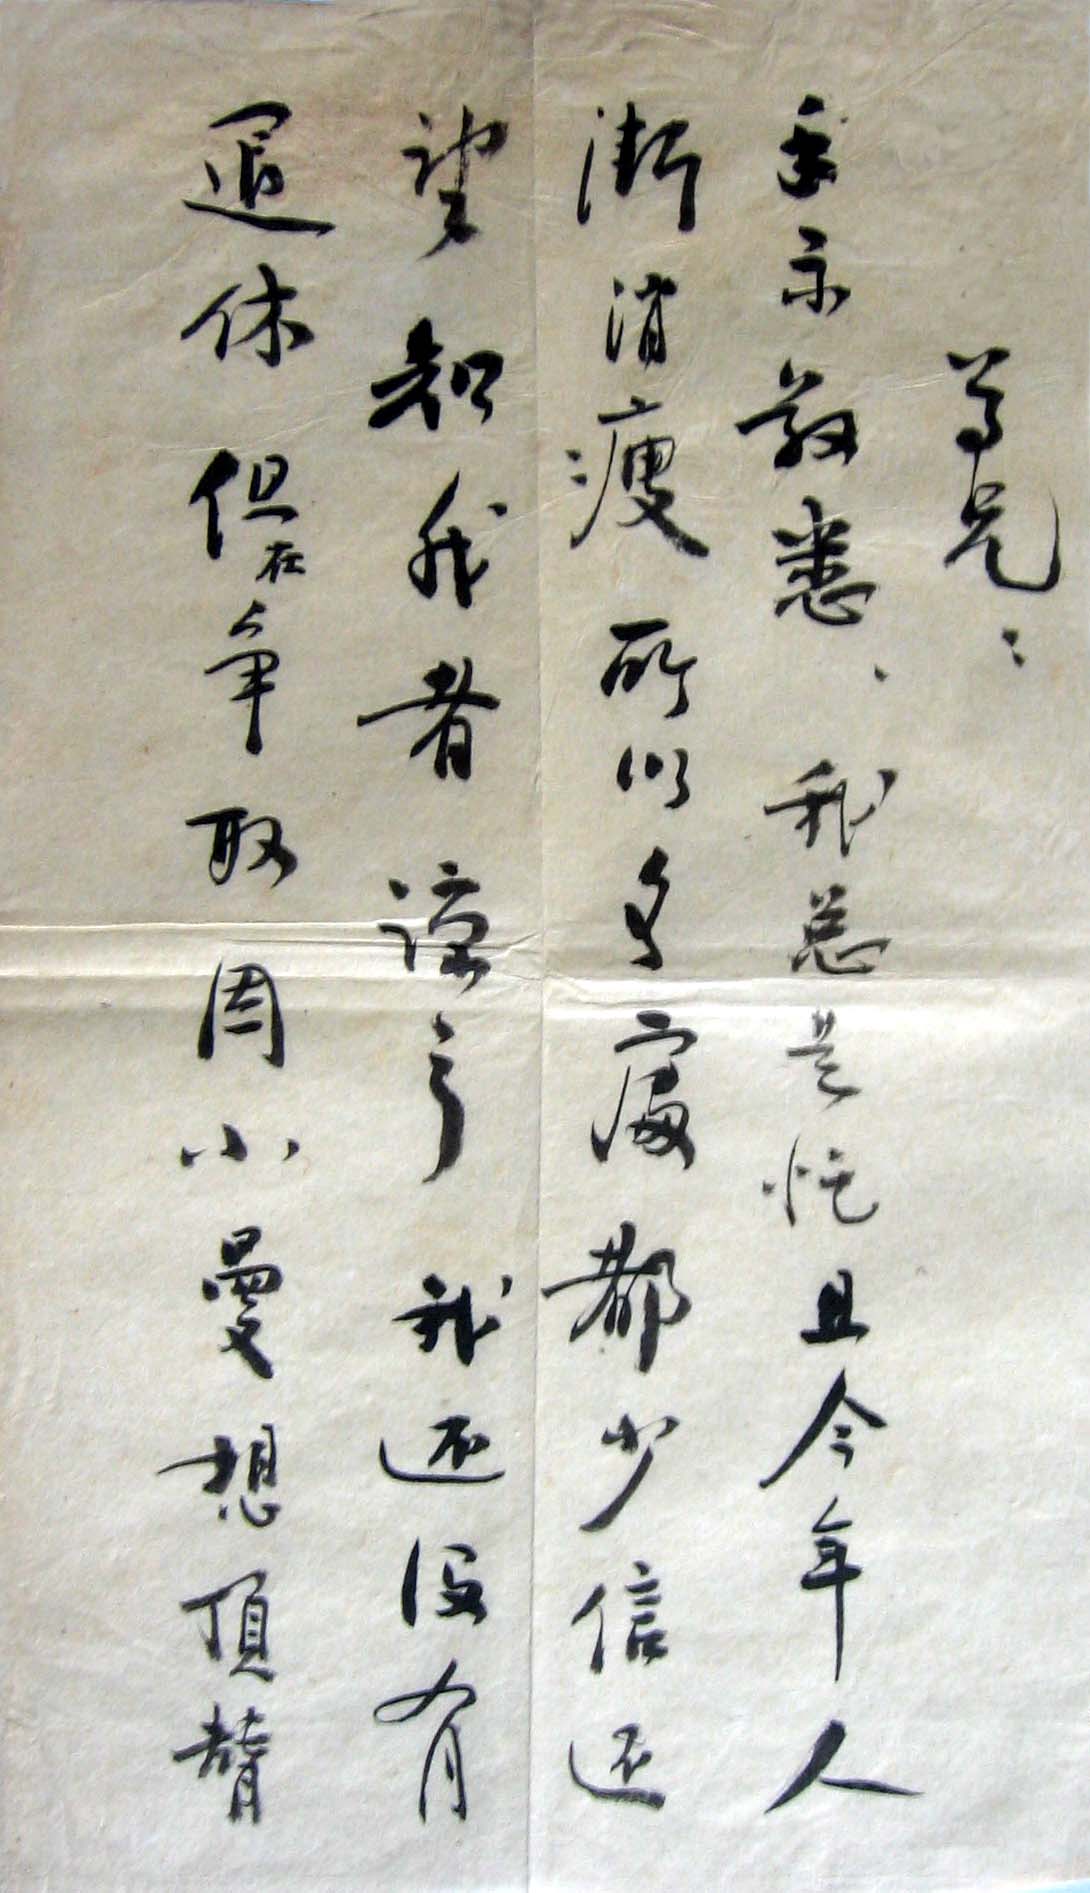 尊兄：
手示敬悉、我总是忙且今年人
渐消瘦：所以多处都少信还
望知我者谅之我还没有
退休但在争取因小曼想顶替